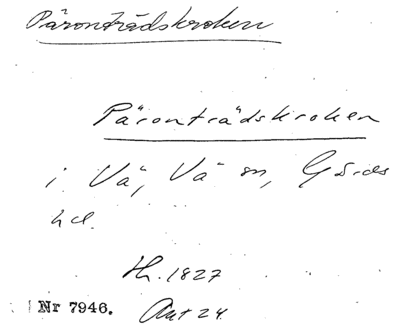 Päronträdskroken
Päronträdskroken
i Vä, Vä sn, Gärds
hd.
Th. 1827
Nr 7946. Akt 24